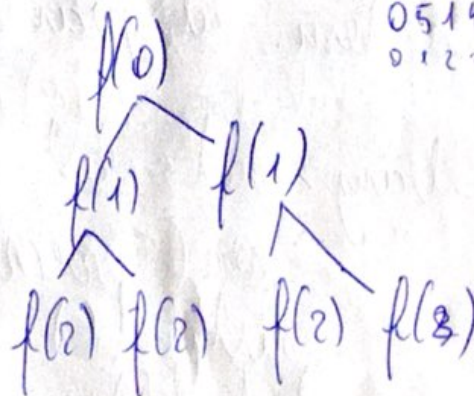 051
012
f(0)
f(1) f(1)
f(2) f(2) f(2)